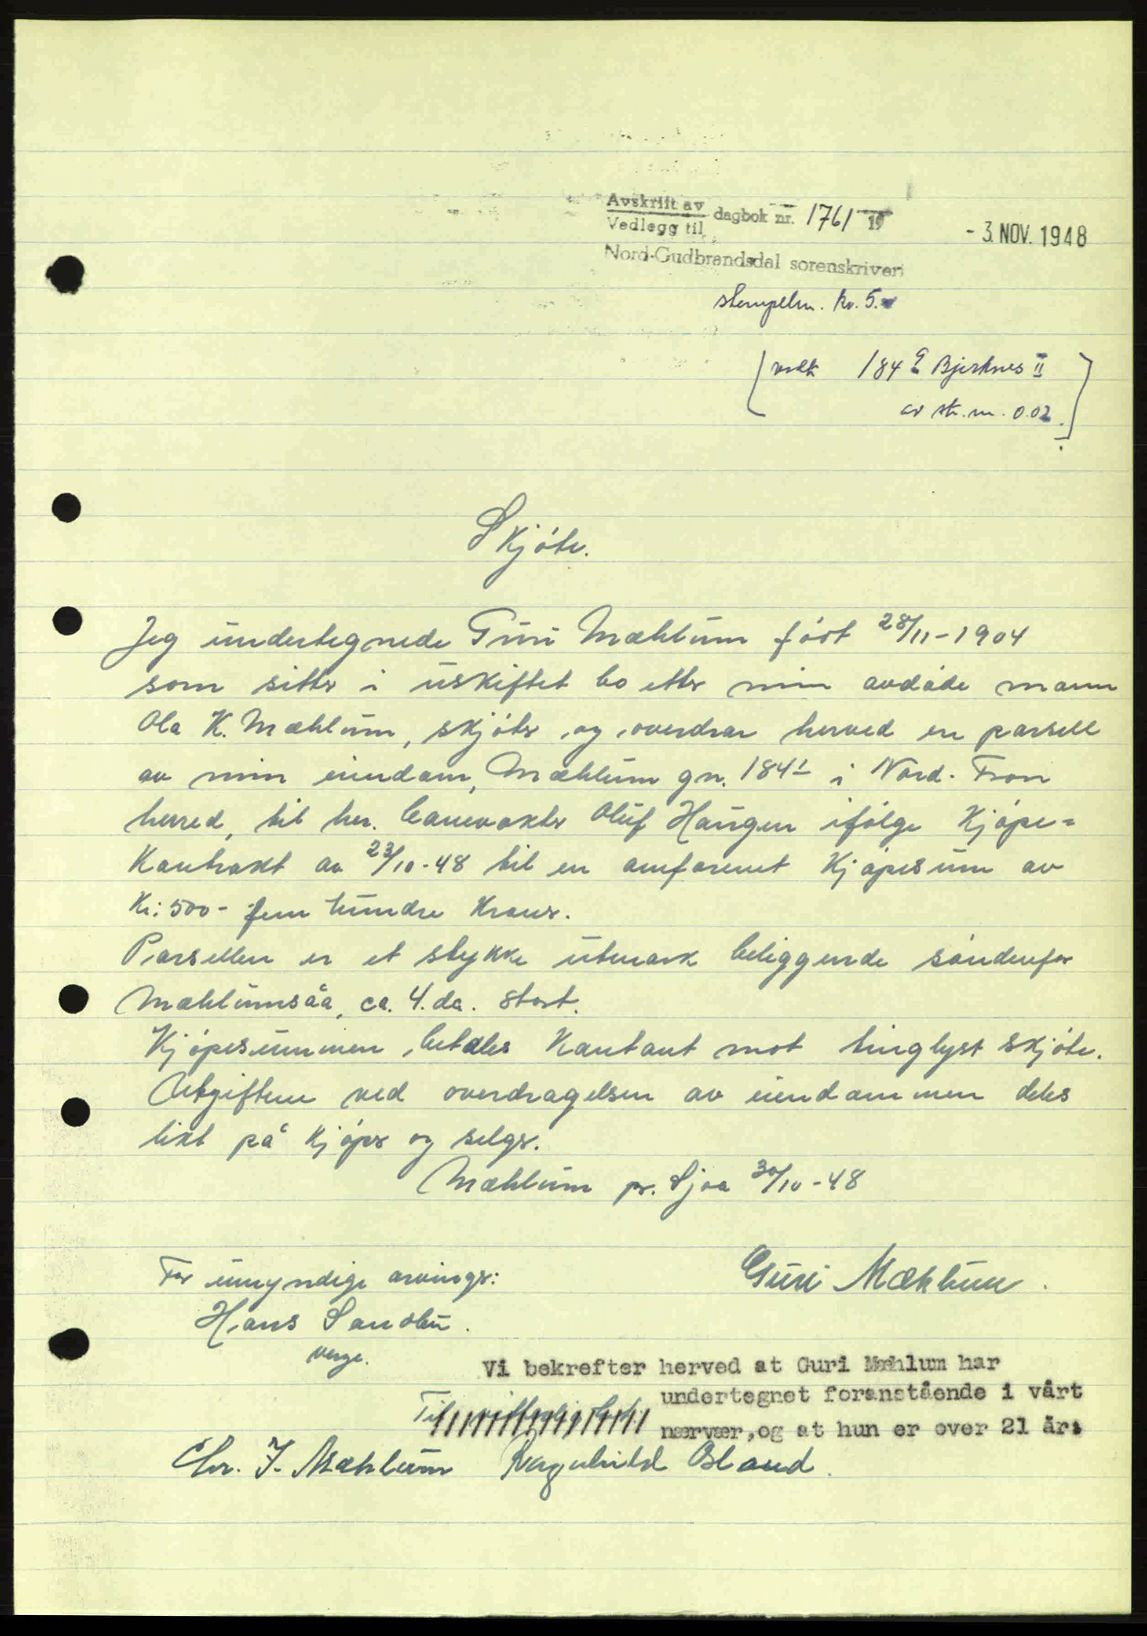 Avskrift av
Vedlegg til dagbok nr. 1761 19
Nord-Gudbrandsdal sorenskriveri
- 3. NOV. 1948
stempelm. kr. 5.-
[vedk 184 9 Bjerknes II
av sk.m. 0.02.]
Skjöte.
Jeg undertegnede Guri Mæhlum föst 28/11-1904
som sitter i uskiftet bo etter min avdøde mann
Ola K. Mæhlum, skjöter og overdrar herved en parsell
av min eiendom, Mæhlum gn. 184¹ i Nord-Fron
herred, til hr. banevokter Oluf Haugen ifölge Kjöpe=
Kontrakt av 23/10-48 til en omforenet Kjöpesum av
Kr: 500- fem hundre Kroner.
Parsellen er et stykke utmark beliggende söndenfor
Mæhlumsåa, ca. 4. da. stort.
Kjöpesummen betales Kontant mot tinglyst skjöte.
Utgiftene ved overdragelsen av eiendommen deles
likt på kjöper og selger.
Mæhlum pr. Sjoa 30/10-48
For umyndige arvinger:
Hans Sandbu.
verge.
Guri Mæhlum.
Vi bekrefter herved at Guri Mæhlum har
undertegnet foranstående i vårt
nærvær,og at hun er over 21 år.
Chr. J. Mæhlum Ragnhild Bland.